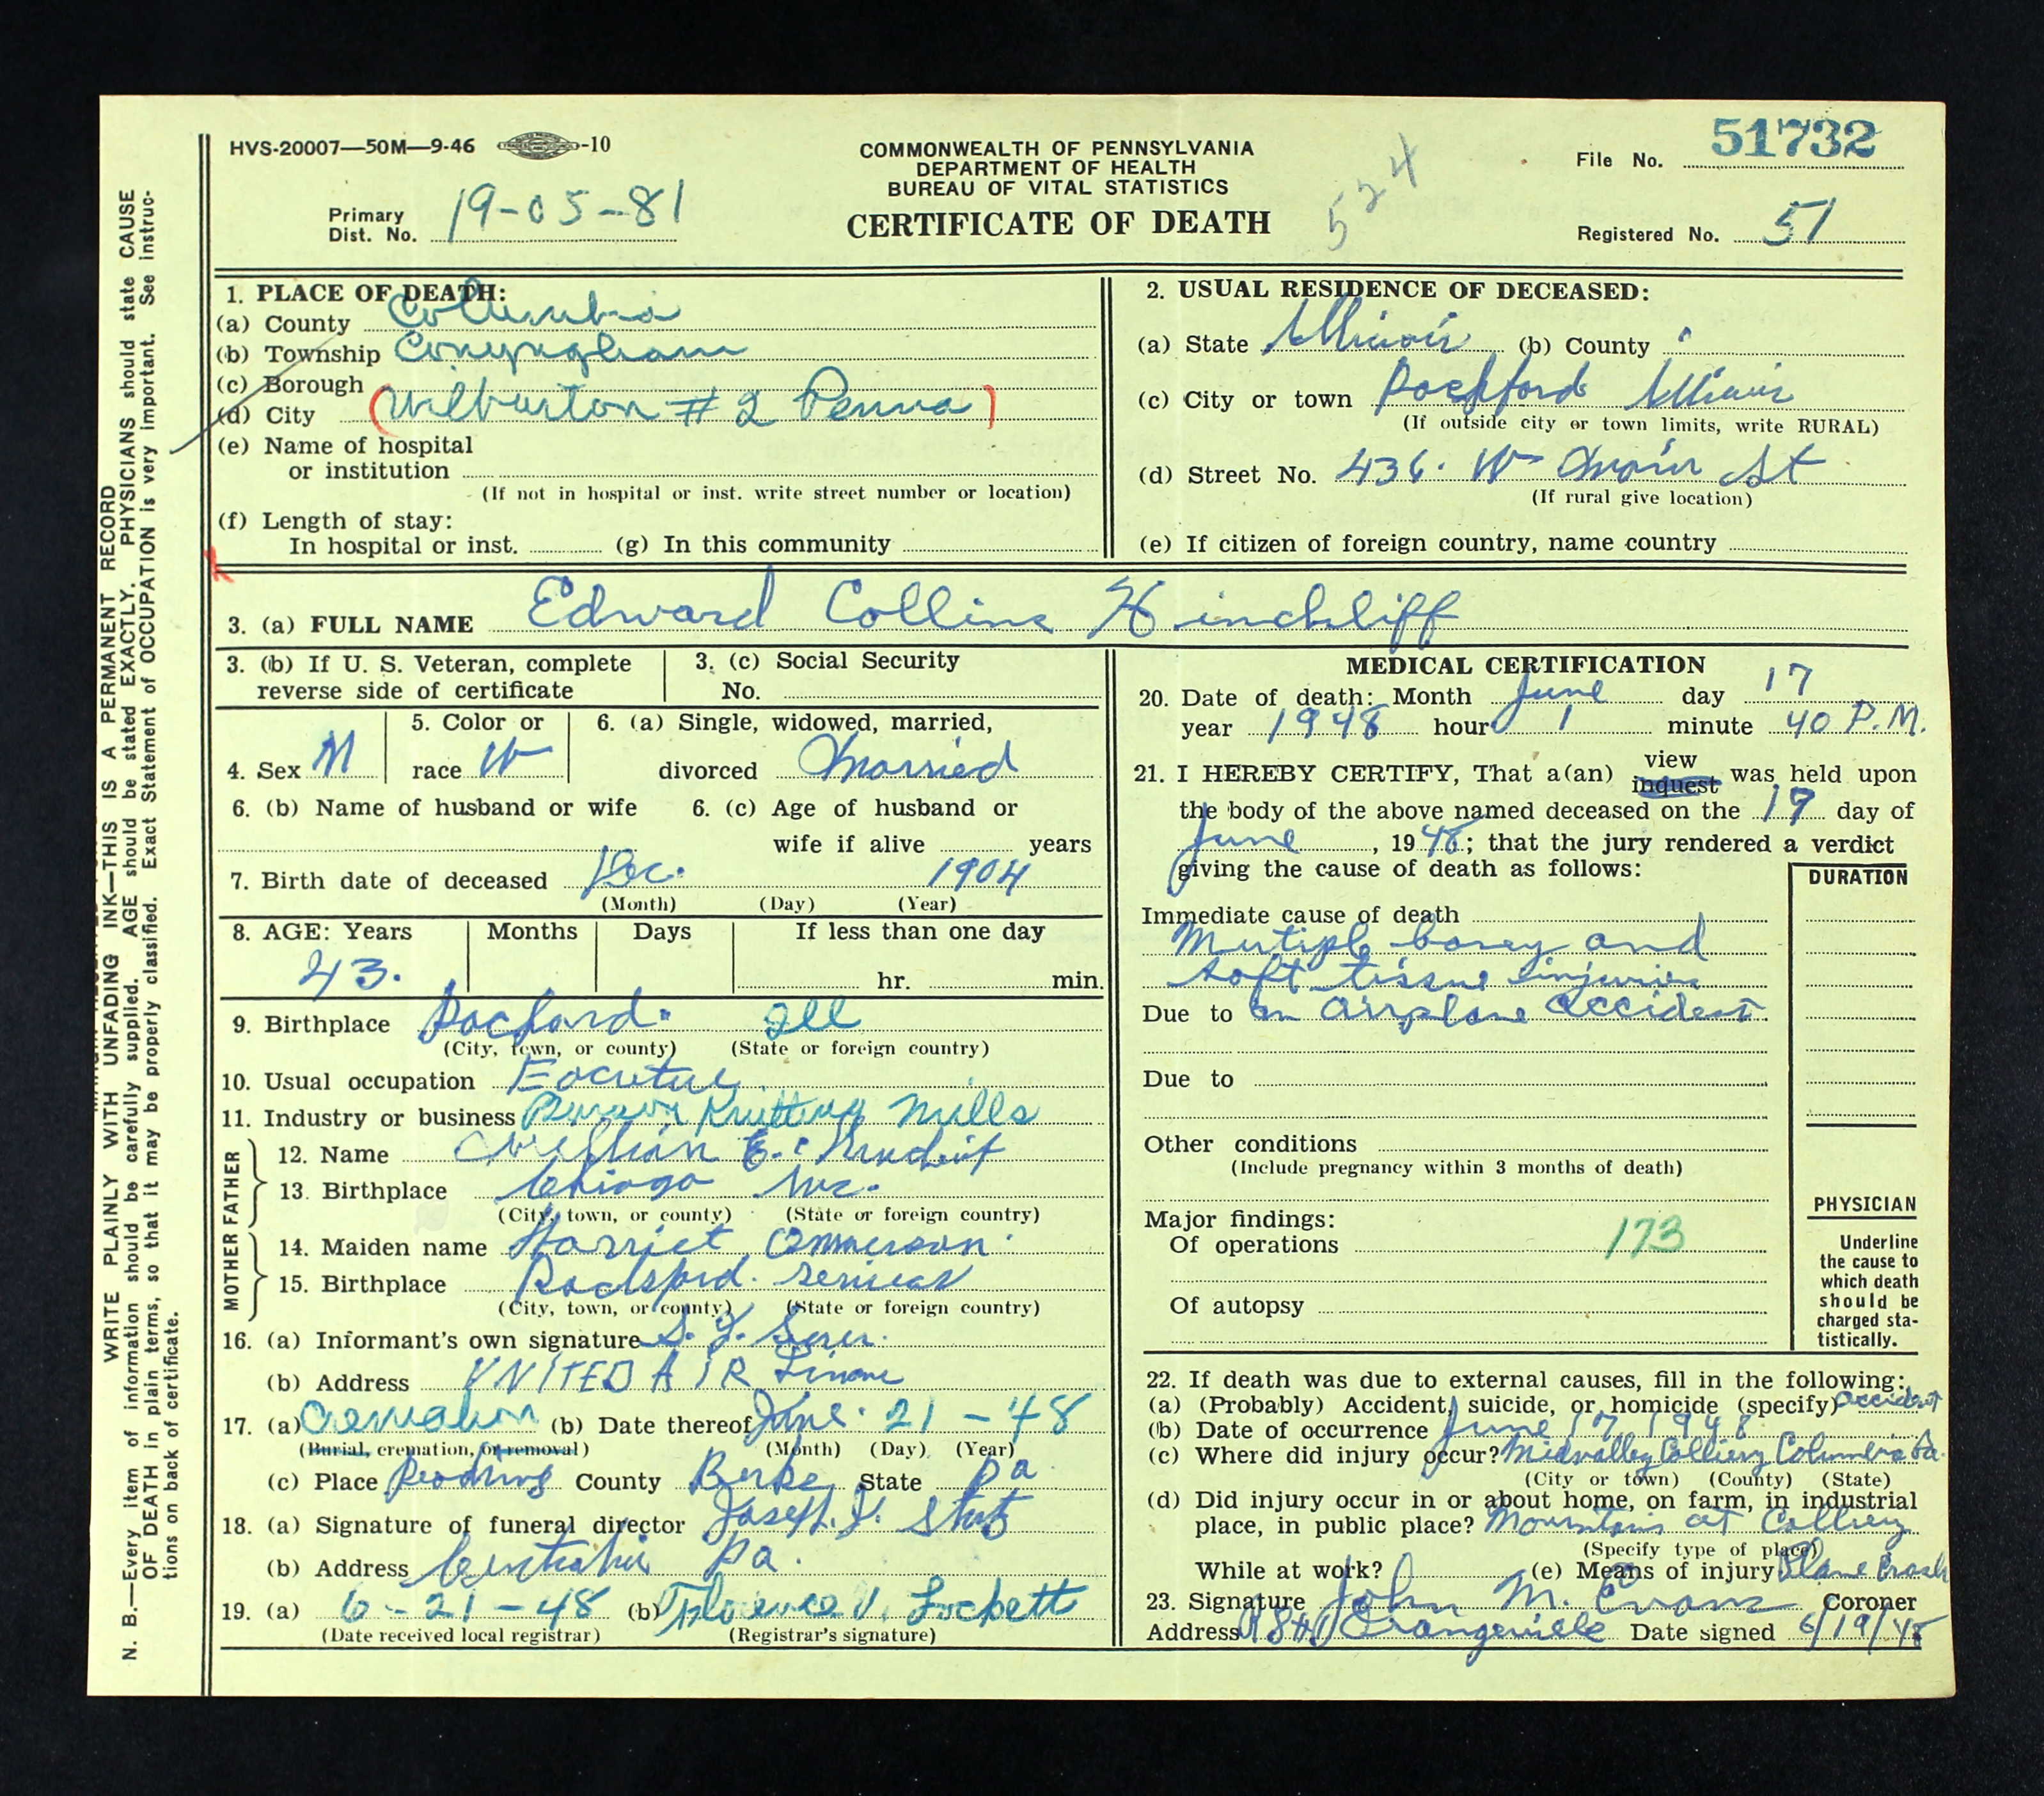 HVS-20007—50M—9-46 -10
COMMONWEALTH OF PENNSYLVANIA
DEPARTMENT OF HEALTH
BUREAU OF VITAL STATISTICS
CERTIFICATE OF DEATH
524
File No. 51732
Primary Dist. No. 19-05-81
Registered No. 51
WRITE PLAINLY WITH UNFADING INK—THIS IS A PERMANENT RECORD
N. B.—Every item of information should be carefully supplied. AGE should be stated EXACTLY. PHYSICIANS should state CAUSE
OF DEATH in plain terms, so that it may be properly classified. Exact Statement of OCCUPATION is very important. See instruc-
tions on back of certificate.
1. PLACE OF DEATH:
(a) County Columbia
(b) Township Conyngham
(c) Borough
(d) City (Wilburton #2 Penna)
(e) Name of hospital
or institution
(If not in hospital or inst. write street number or location)
(f) Length of stay:
In hospital or inst. (g) In this community
2. USUAL RESIDENCE OF DECEASED:
(a) State Illinois (b) County
(c) City or town Rockford Illinois
(If outside city or town limits, write RURAL)
(d) Street No. 436. W Main St
(If rural give location)
(e) If citizen of foreign country, name country
3. (a) FULL NAME Edward Collins Hinchliff
3. (b) If U. S. Veteran, complete
reverse side of certificate
3. (c) Social Security
No.
4. Sex M
5. Color or
race W
6. (a) Single, widowed, married,
divorced Married
6. (b) Name of husband or wife
6. (c) Age of husband or
wife if alive years
7. Birth date of deceased Dec. 1904
(Month) (Day) (Year)
8. AGE: Years Months Days If less than one day
43. hr. min.
9. Birthplace Rockford. Ill
(City, town, or county) (State or foreign country)
10. Usual occupation
11. Industry or business Burson Knitting Mills
FATHER
12. Name E.
13. Birthplace Chicago
(City, town, or county) (State or foreign country)
MOTHER
14. Maiden name Harriet
15. Birthplace
(City, town, or county) (State or foreign country)
16. (a) Informant's own signature
(b) Address UNITED AIR
17. (a) Cremation (b) Date thereof June 21 - 48
(Burial, cremation, or removal) (Month) (Day) (Year)
(c) Place Reading County Berks State Pa
18. (a) Signature of funeral director Joseph
(b) Address Centralia Pa.
19. (a) 6-21-48 (b) Florence V. Lockett
(Date received local registrar) (Registrar's signature)
MEDICAL CERTIFICATION
20. Date of death: Month June day 17
year 1948 hour 1 minute 40 P.M.
view
21. I HEREBY CERTIFY, That a(an) inquest was held upon
the body of the above named deceased on the day of
June, 1948; that the jury rendered a verdict
giving the cause of death as follows:
DURATION
Immediate cause of death
Mutiple boney and
soft tissue injuries
Due to an airplane accident
Due to
Other conditions
(Include pregnancy within 3 months of death)
Major findings:
Of operations 173
Of autopsy
PHYSICIAN
Underline
the cause to
which death
should be
charged sta-
tistically.
22. If death was due to external causes, fill in the following:
(a) (Probably) Accident, suicide, or homicide (specify) accident
(b) Date of occurrence June 17 1948
(c) Where did injury occur? Midvalley Colliery Columbia Pa.
(City or town) (County) (State)
(d) Did injury occur in or about home, on farm, in industrial
place, in public place? Mountain at Colliery
(Specify type of place)
While at work? (e) Means of injury Plane Crash
23. Signature John M. Evans Coroner
Address Orangeville Date signed 6/19/48